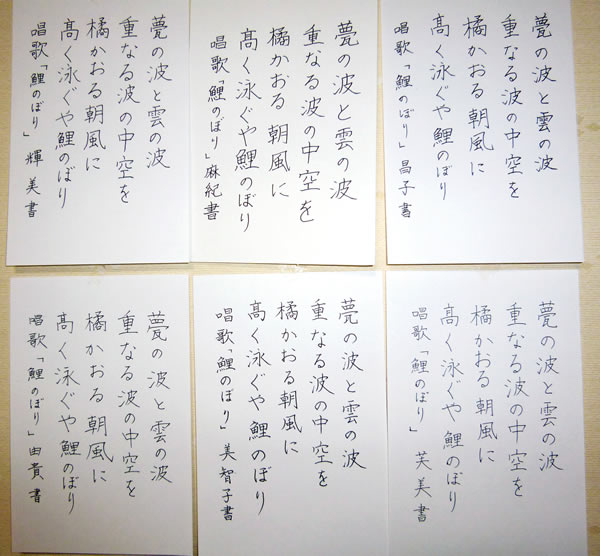 甍の波と雲の波
重なる波の中空を
橘かおる朝風に
高く泳ぐや鯉のぼり
唱歌「鯉のぼり」昌子書
甍の波と雲の波
重なる波の中空を
橘かおる朝風に
高く泳ぐや鯉のぼり
唱歌「鯉のぼり」麻紀書
甍の波と雲の波
重なる波の中空を
橘かおる朝風に
高く泳ぐや鯉のぼり
唱歌「鯉のぼり」輝美書
甍の波と雲の波
重なる波の中空を
橘かおる朝風に
高く泳ぐや鯉のぼり
唱歌「鯉のぼり」芙美書
甍の波と雲の波
重なる波の中空を
橘かおる朝風に
高く泳ぐや鯉のぼり
唱歌「鯉のぼり」美智子書
甍の波と雲の波
重なる波の中空を
橘かおる朝風に
高く泳ぐや鯉のぼり
唱歌「鯉のぼり」由貴書